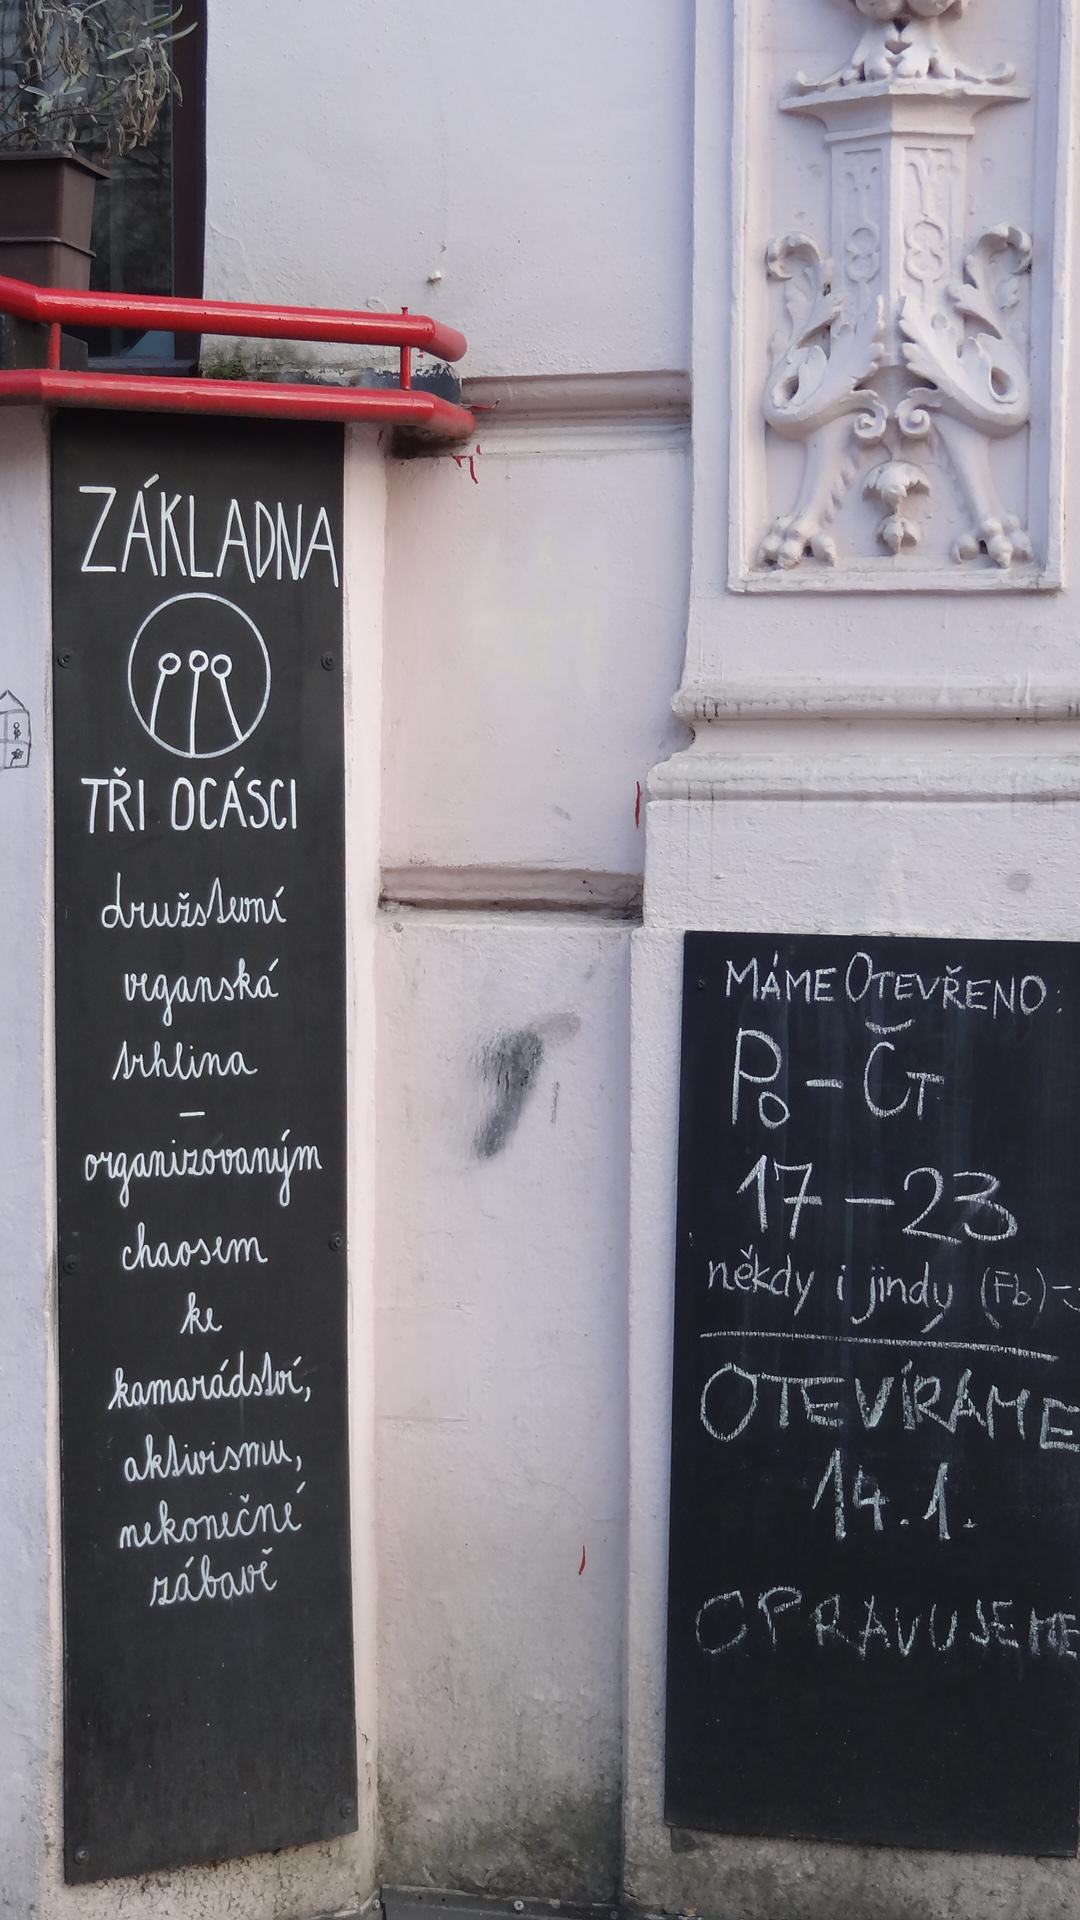 ZÁKLADNA
TŘI OCÁSCI
družstevní
veganská
trhlina
–
organizovaným
chaosem
ke
kamarádství,
aktivismu,
nekonečné
zábavě
MÁME OTEVŘENO:
PO – ČT
17 – 23
někdy i jindy (Fb)
OTEVÍRÁME
14.1.
OPRAVUJEME